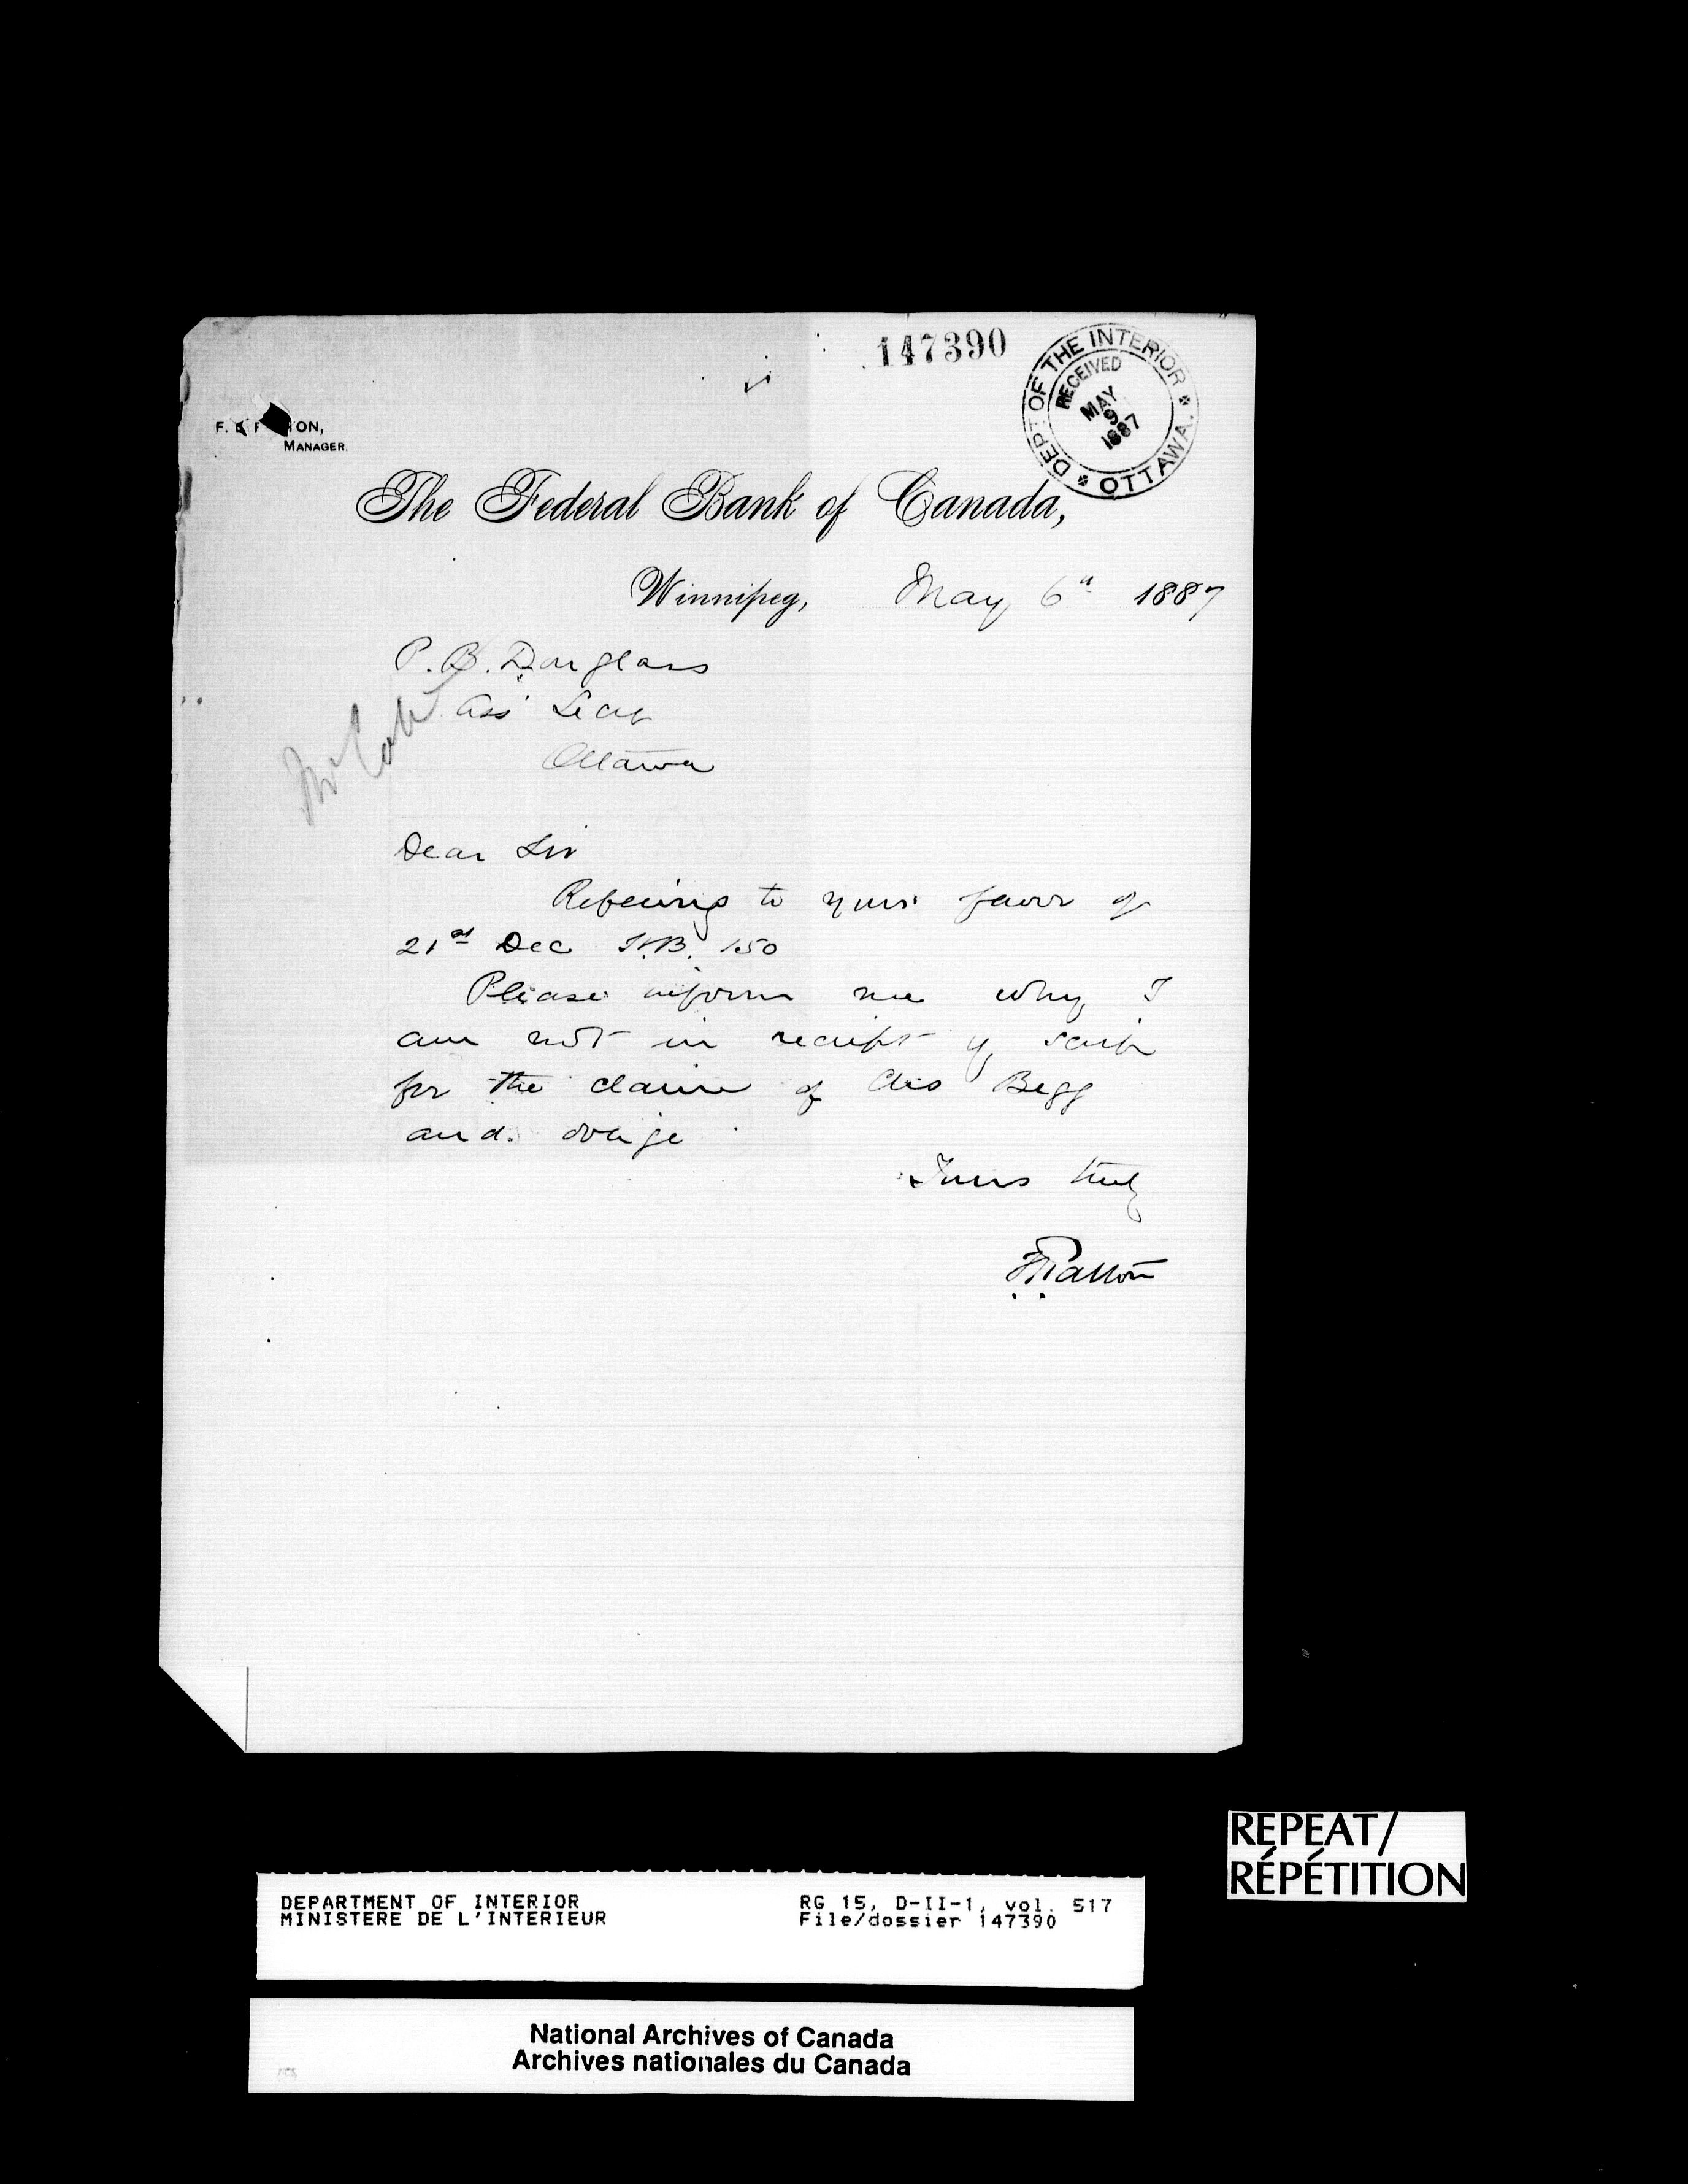 147390
DEPT OF THE INTERIOR
RECEIVED
MAY
9
1887
OTTAWA.
MANAGER.
The Federal Bank of Canada,
Winnipeg, May 6th 1887
P. B. Douglass
Ass Secy
Ottawa
Mr
Dear Sir
Refering to your favor of
21st Dec H.B. 150
Please inform me why I
am not in receipt of scrip
for the claim of Chs Begg
and oblige
Yours truly
F.L.Patton
DEPARTMENT OF INTERIOR
MINISTERE DE L'INTERIEUR
RG 15, D-II-1, vol. 517
File/dossier 147390
REPEAT/
RÉPÉTITION
National Archives of Canada
Archives nationales du Canada